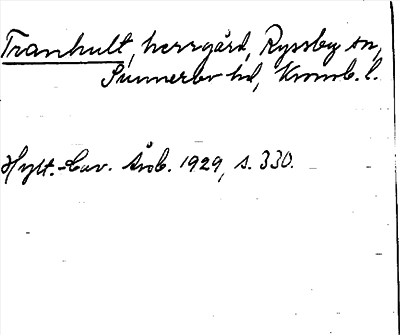 Tranhult, herrgård, Ryssby sn,
Sunnerbo hd, Kronob. l.
Hylt.-Cav. årsb. 1929, s. 330.